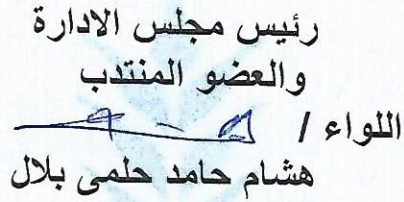 رئيس مجلس الادارة
والعضو المنتدب
اللواء /
هشام حامد حلمى بلال